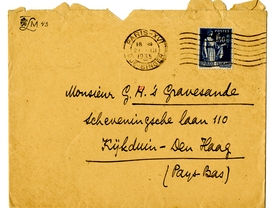 LM 43
PARIS-XVI
18 H
1935
POSTES
Monsieur G. H. 's Gravesande
Scheveningsche laan 110
Kijkduin - Den Haag
(Pays-Bas)